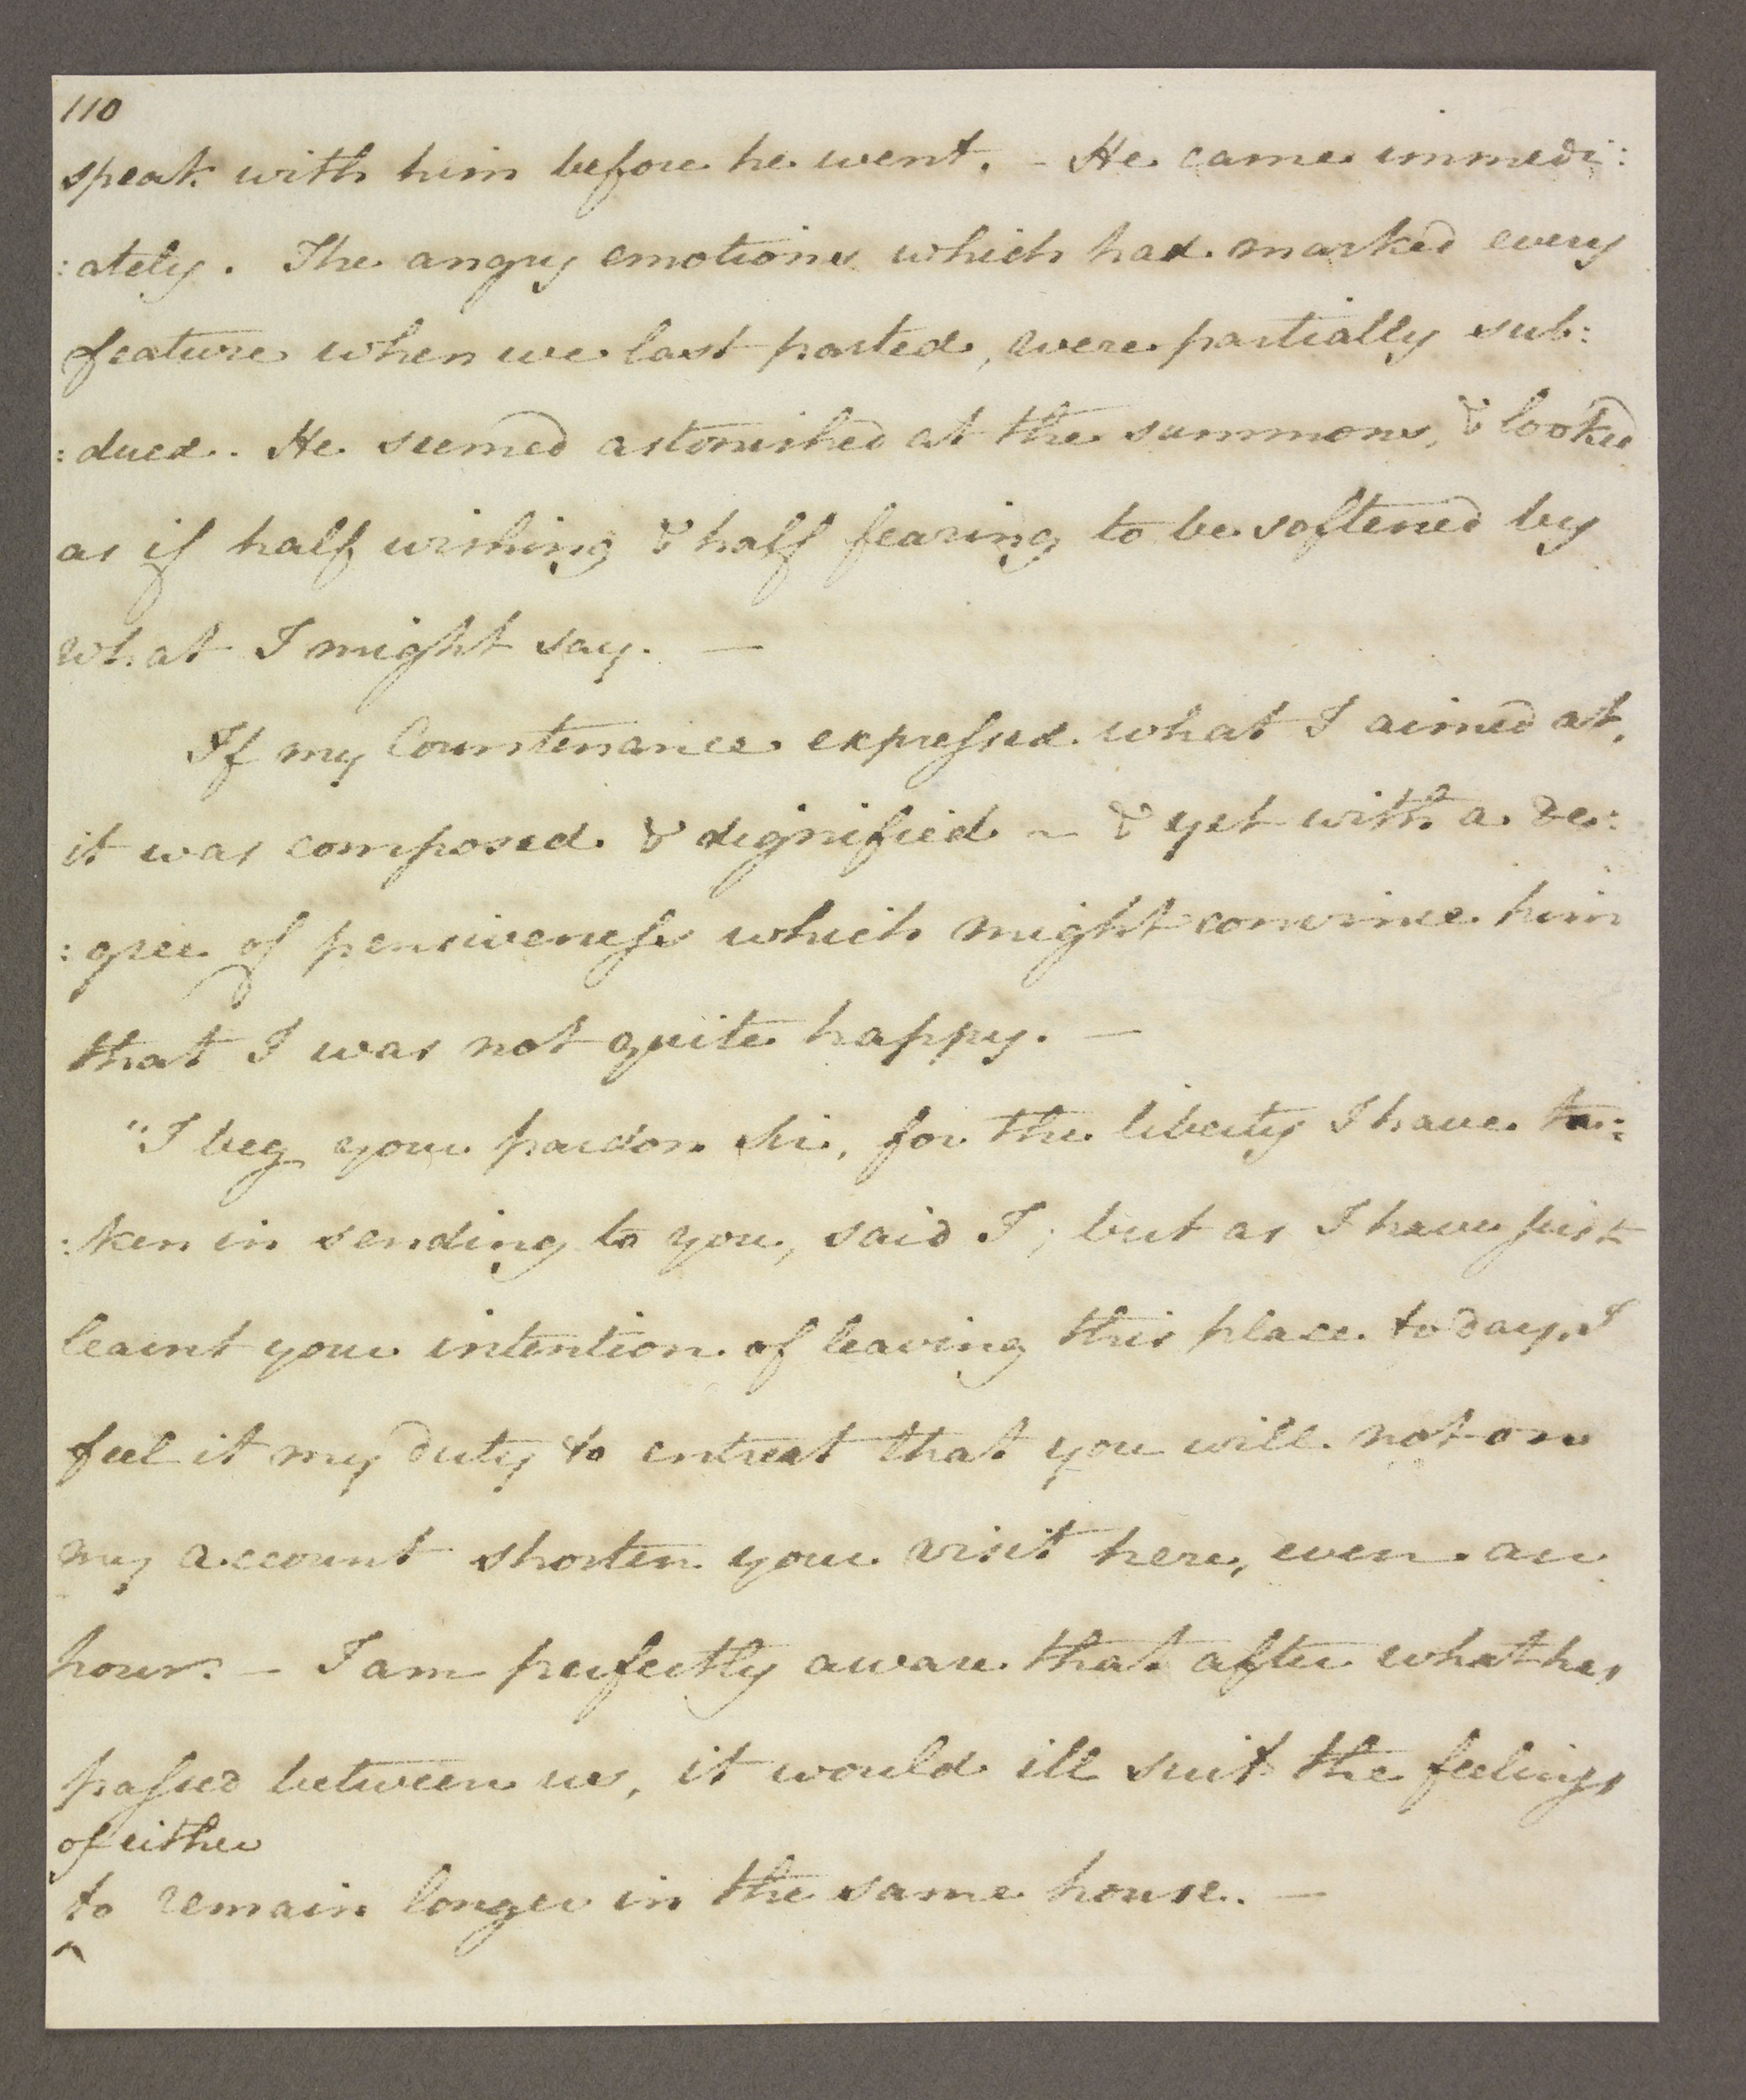 110
speak with him before he went. – He came immedi:
:ately. The angry emotions which had marked every
feature when we last parted, were partially sub:
:dued. He seemed astonished at the summons, & looked
as if half wishing & half fearing to be softened by
what I might say. —
If my Countenance expressed what I aimed at,
it was composed & dignified ~ & yet with a de:
:gree of pensiveness which might convince him
that I was not quite happy. —
"I beg your pardon Sir, for the liberty I have ta:
:ken in sending to you, said I; but as I have just
learnt your intention of leaving this place to day, I
feel it my duty to entreat that you will not on
my account shorten your visit here, even an
hour. – I am perfectly aware that after what has
passed between us, it would ill suit the feelings
of either
to remain longer in the same house. —
^